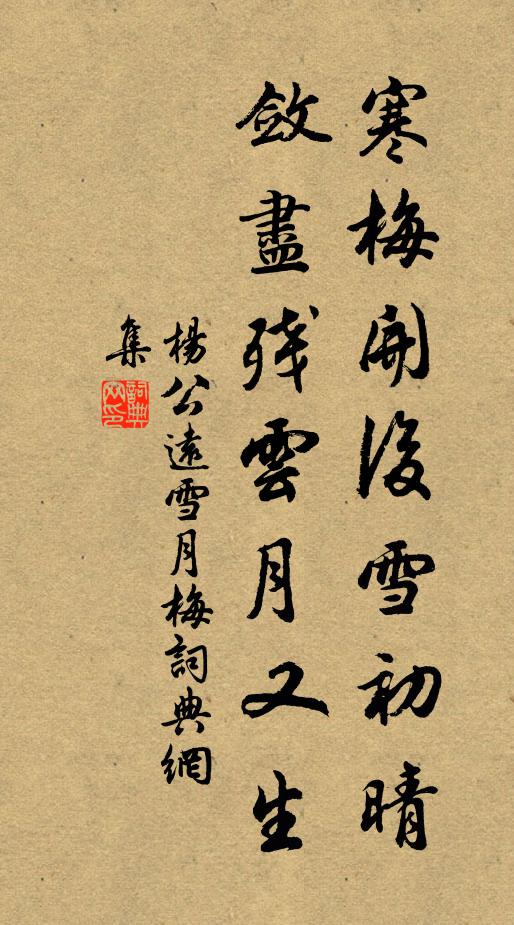 寒梅開後雪初晴
斂盡殘雲月又生
楊公遠雪月梅詞典網
集
詞典网印